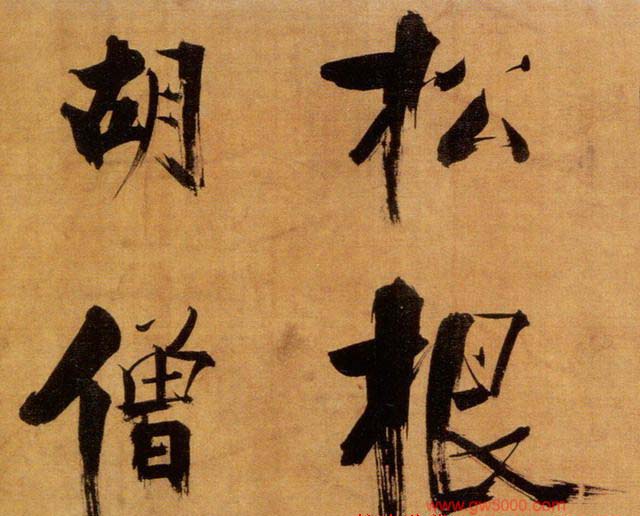 松根
胡僧
www.gw5000.com